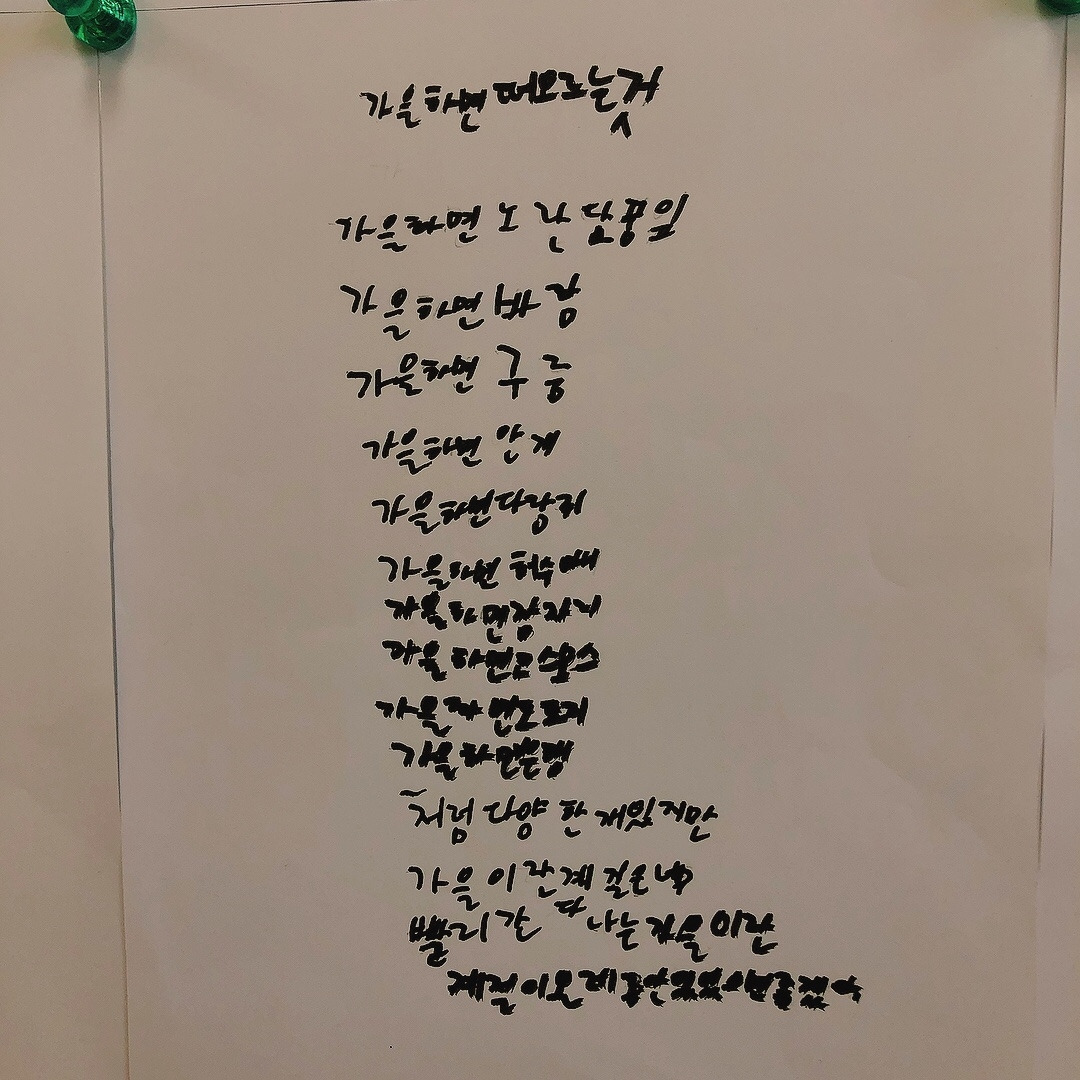 가을하면 떠오르는것
가을하면 노란 단풍잎
가을하면 바람
가을하면 구름
가을하면 안개
가을하면 다람쥐
가을하면 허수아비
가을하면 잠자리
가을하면 코스모스
가을하면 도토리
가을하면 은행
처럼 다양한 게있지만
가을이란계절은너무
빨리간다 나는 가을이란
계절이 오래